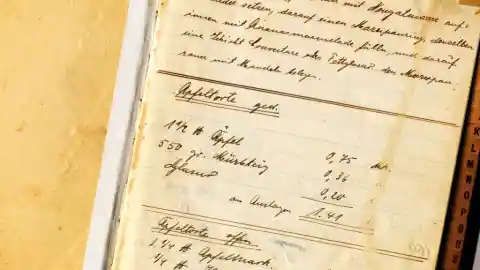 mit Nougatmasse auf-
setzen, darauf einen Marzipanring, denselben
innen mit Ananasmarmelade füllen und darauf
eine Schicht Couverture oder Fettglasur, den Marzipan-
mit Mandeln belegen.
Apfeltorte ged.
1 1/2 ℔ Äpfel 0,75 Mk.
550 gr. Mürbteig 0,36 "
Glasur 0,20 "
an Auslagen 1.41 "
Apfeltorte offen
1 1/4 ℔ Apfelmark
1/4 ℔
K L M N O P Q